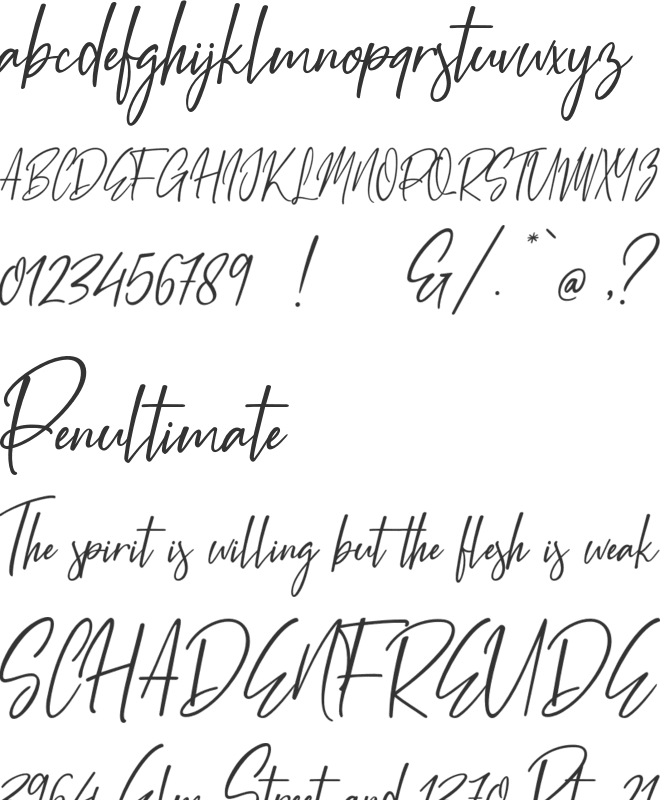 abcdefghijklmnopqrstuvwxyz
ABCDEFGHIJKLMNOPQRSTUVWXYZ
0123456789 ! &/. *`@ ,?
Penultimate
The spirit is willing but the flesh is weak
SCHADENFREUDE
2964 Elm Street and 1370 Rt. 21